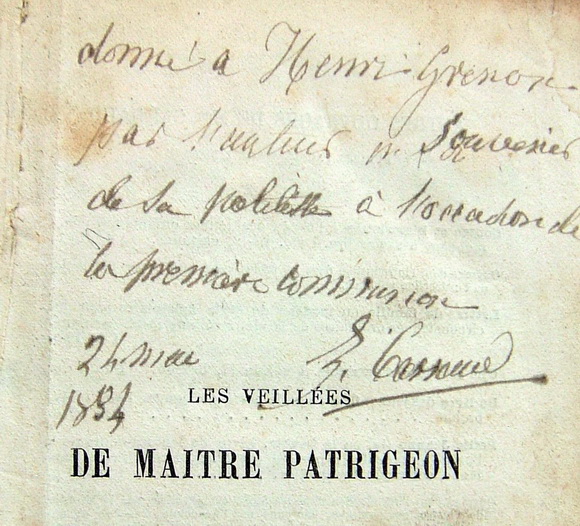 donné a Henri Grenon
par l'auteur en Souvenir
de sa politesse à l'occasion de
la première communion
24 mai
1894
LES VEILLÉES
DE MAITRE PATRIGEON